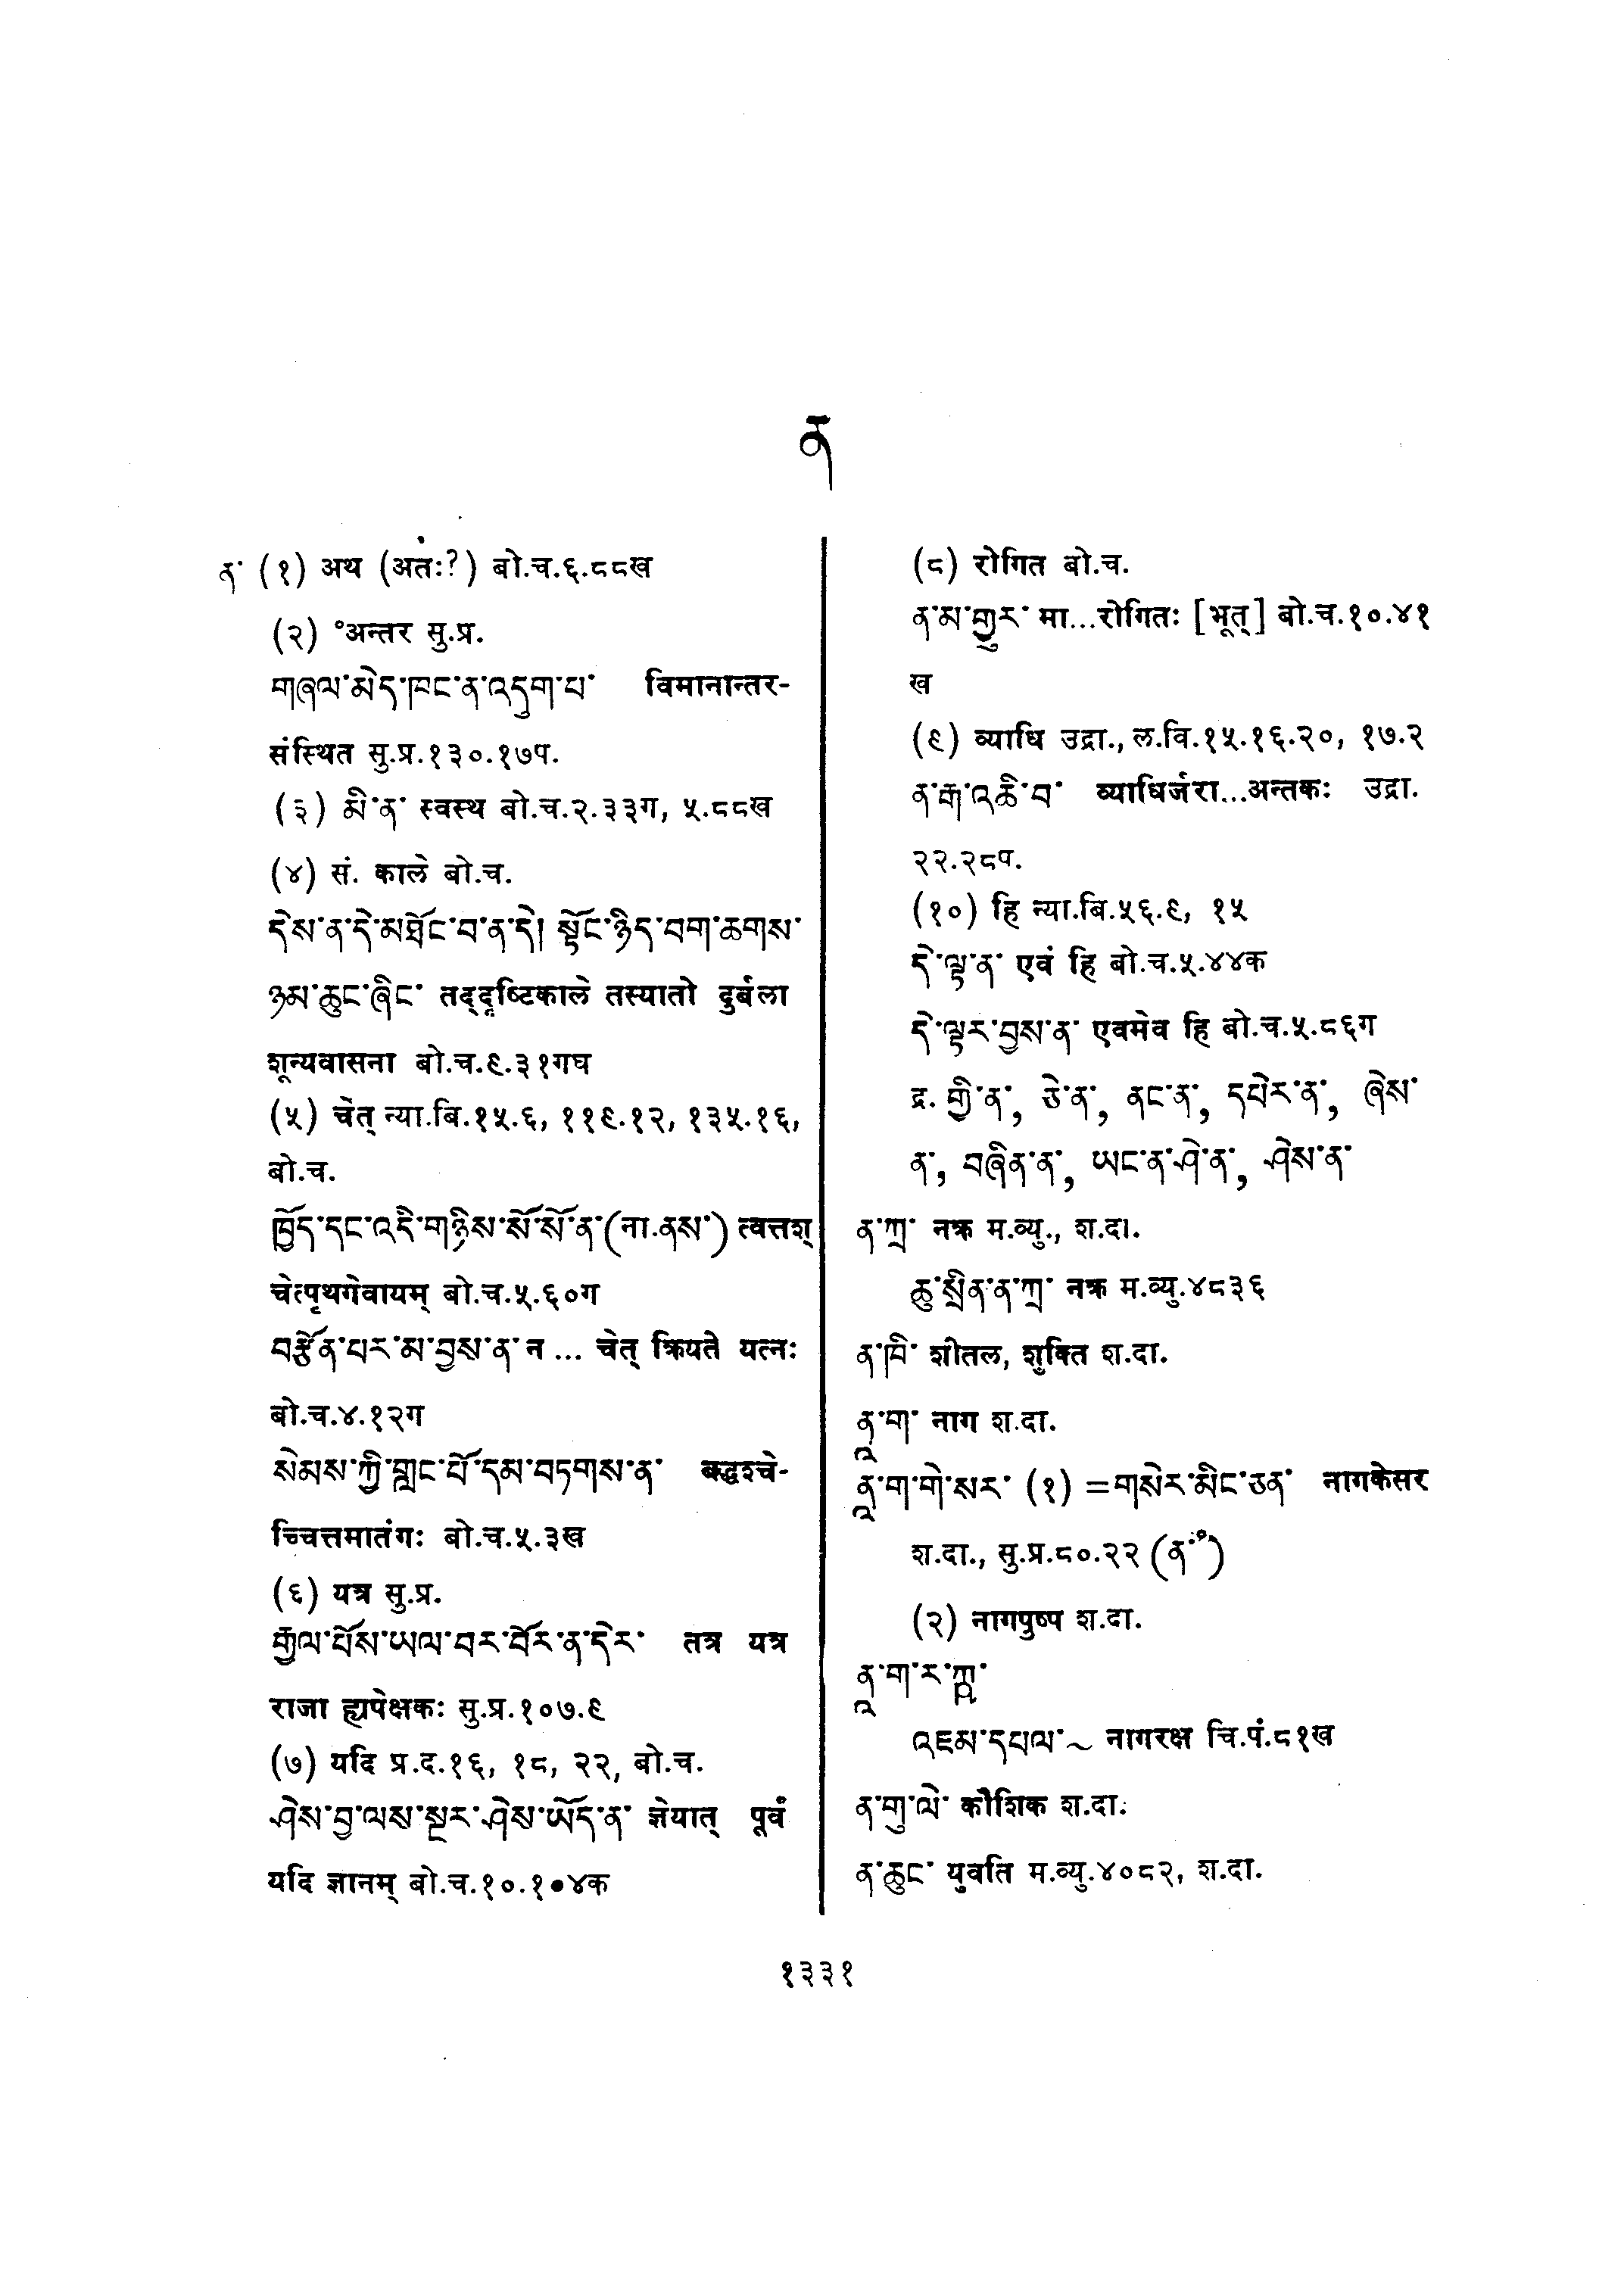 ན
ན་ (१) अथ (अतः?) बो.च.६.८८ख
(२) °अन्तर सु.प्र.
གཞལ་མེད་ཁང་ན་འདུག་པ་ विमानान्तर-
संस्थित सु.प्र.१३०.१७प.
(३) མི་ན་ स्वस्थ बो.च.२.३३ग, ५.८८ख
(४) सं. काले बो.च.
དེས་ན་དེ་མཐོང་བ་ན་དེ། སྟོང་ཉིད་བག་ཆགས་
ཉམ་ཆུང་ཞིང་ तद्दृष्टिकाले तस्यातो दुर्बला
शून्यवासना बो.च.९.३१गघ
(५) चेत् न्या.बि.१५.६, ११९.१२, १३५.१६,
बो.च.
ཁྱོད་དང་འདི་གཉིས་སོ་སོ་ན་(ना.ནས་) त्वत्तश्
चेत्पृथगेवायम् बो.च.५.६०ग
བརྩོན་པར་མ་བྱས་ན་ न ... चेत् क्रियते यत्नः
बो.च.४.१२ग
སེམས་ཀྱི་གླང་པོ་དམ་བཏགས་ན་ बद्धश्चे-
च्चित्तमातंगः बो.च.५.३ख
(६) यत्र सु.प्र.
རྒྱལ་པོས་ཡལ་བར་བོར་ན་དེར་ तत्र यत्र
राजा ह्यपेक्षकः सु.प्र.१०७.९
(७) यदि प्र.द.१६, १८, २२, बो.च.
ཤེས་བྱ་ལས་སྔར་ཤེས་ཡོད་ན་ ज्ञेयात् पूर्वं
यदि ज्ञानम् बो.च.१०.१०४क
(८) रोगित बो.च.
ན་མ་གྱུར་ मा...रोगितः [भूत्] बो.च.१०.४१
ख
(९) व्याधि उद्रा., ल.वि.१५.१६.२०, १७.२
ན་རྒ་འཆི་བ་ व्याधिर्जरा...अन्तकः उद्रा.
२२.२८प.
(१०) हि न्या.बि.५६.९, १५
དེ་ལྟ་ན་ एवं हि बो.च.५.४४क
དེ་ལྟར་བྱས་ན་ एवमेव हि बो.च.५.८६ग
द्र. གྱི་ན་, ཅེ་ན་, ནང་ན་, དཔེར་ན་, ཞེས་
ན་, བཞིན་ན་, ཡང་ན་ཤེ་ན་, ཤེས་ན་
ན་ཀྲ་ नक्र म.व्यु., श.दा.
ཆུ་སྲིན་ན་ཀྲ་ नक्र म.व्यु.४८३६
ན་ཁི་ शीतल, शुक्ति श.दा.
ནཱ་ག་ नाग श.दा.
ནཱ་ག་གེ་སར་ (१) =གསེར་མིང་ཅན་ नागकेसर
श.दा., सु.प्र.८०.२२ (ན་°)
(२) नागपुष्प श.दा.
ནཱ་ག་ར་ཀྵ་
འཇམ་དཔལ་~ नागरक्ष चि.पं.८१ख
ན་གུ་ལེ་ कौशिक श.दा.
ན་ཆུང་ युवति म.व्यु.४०८२, श.दा.
१३३१